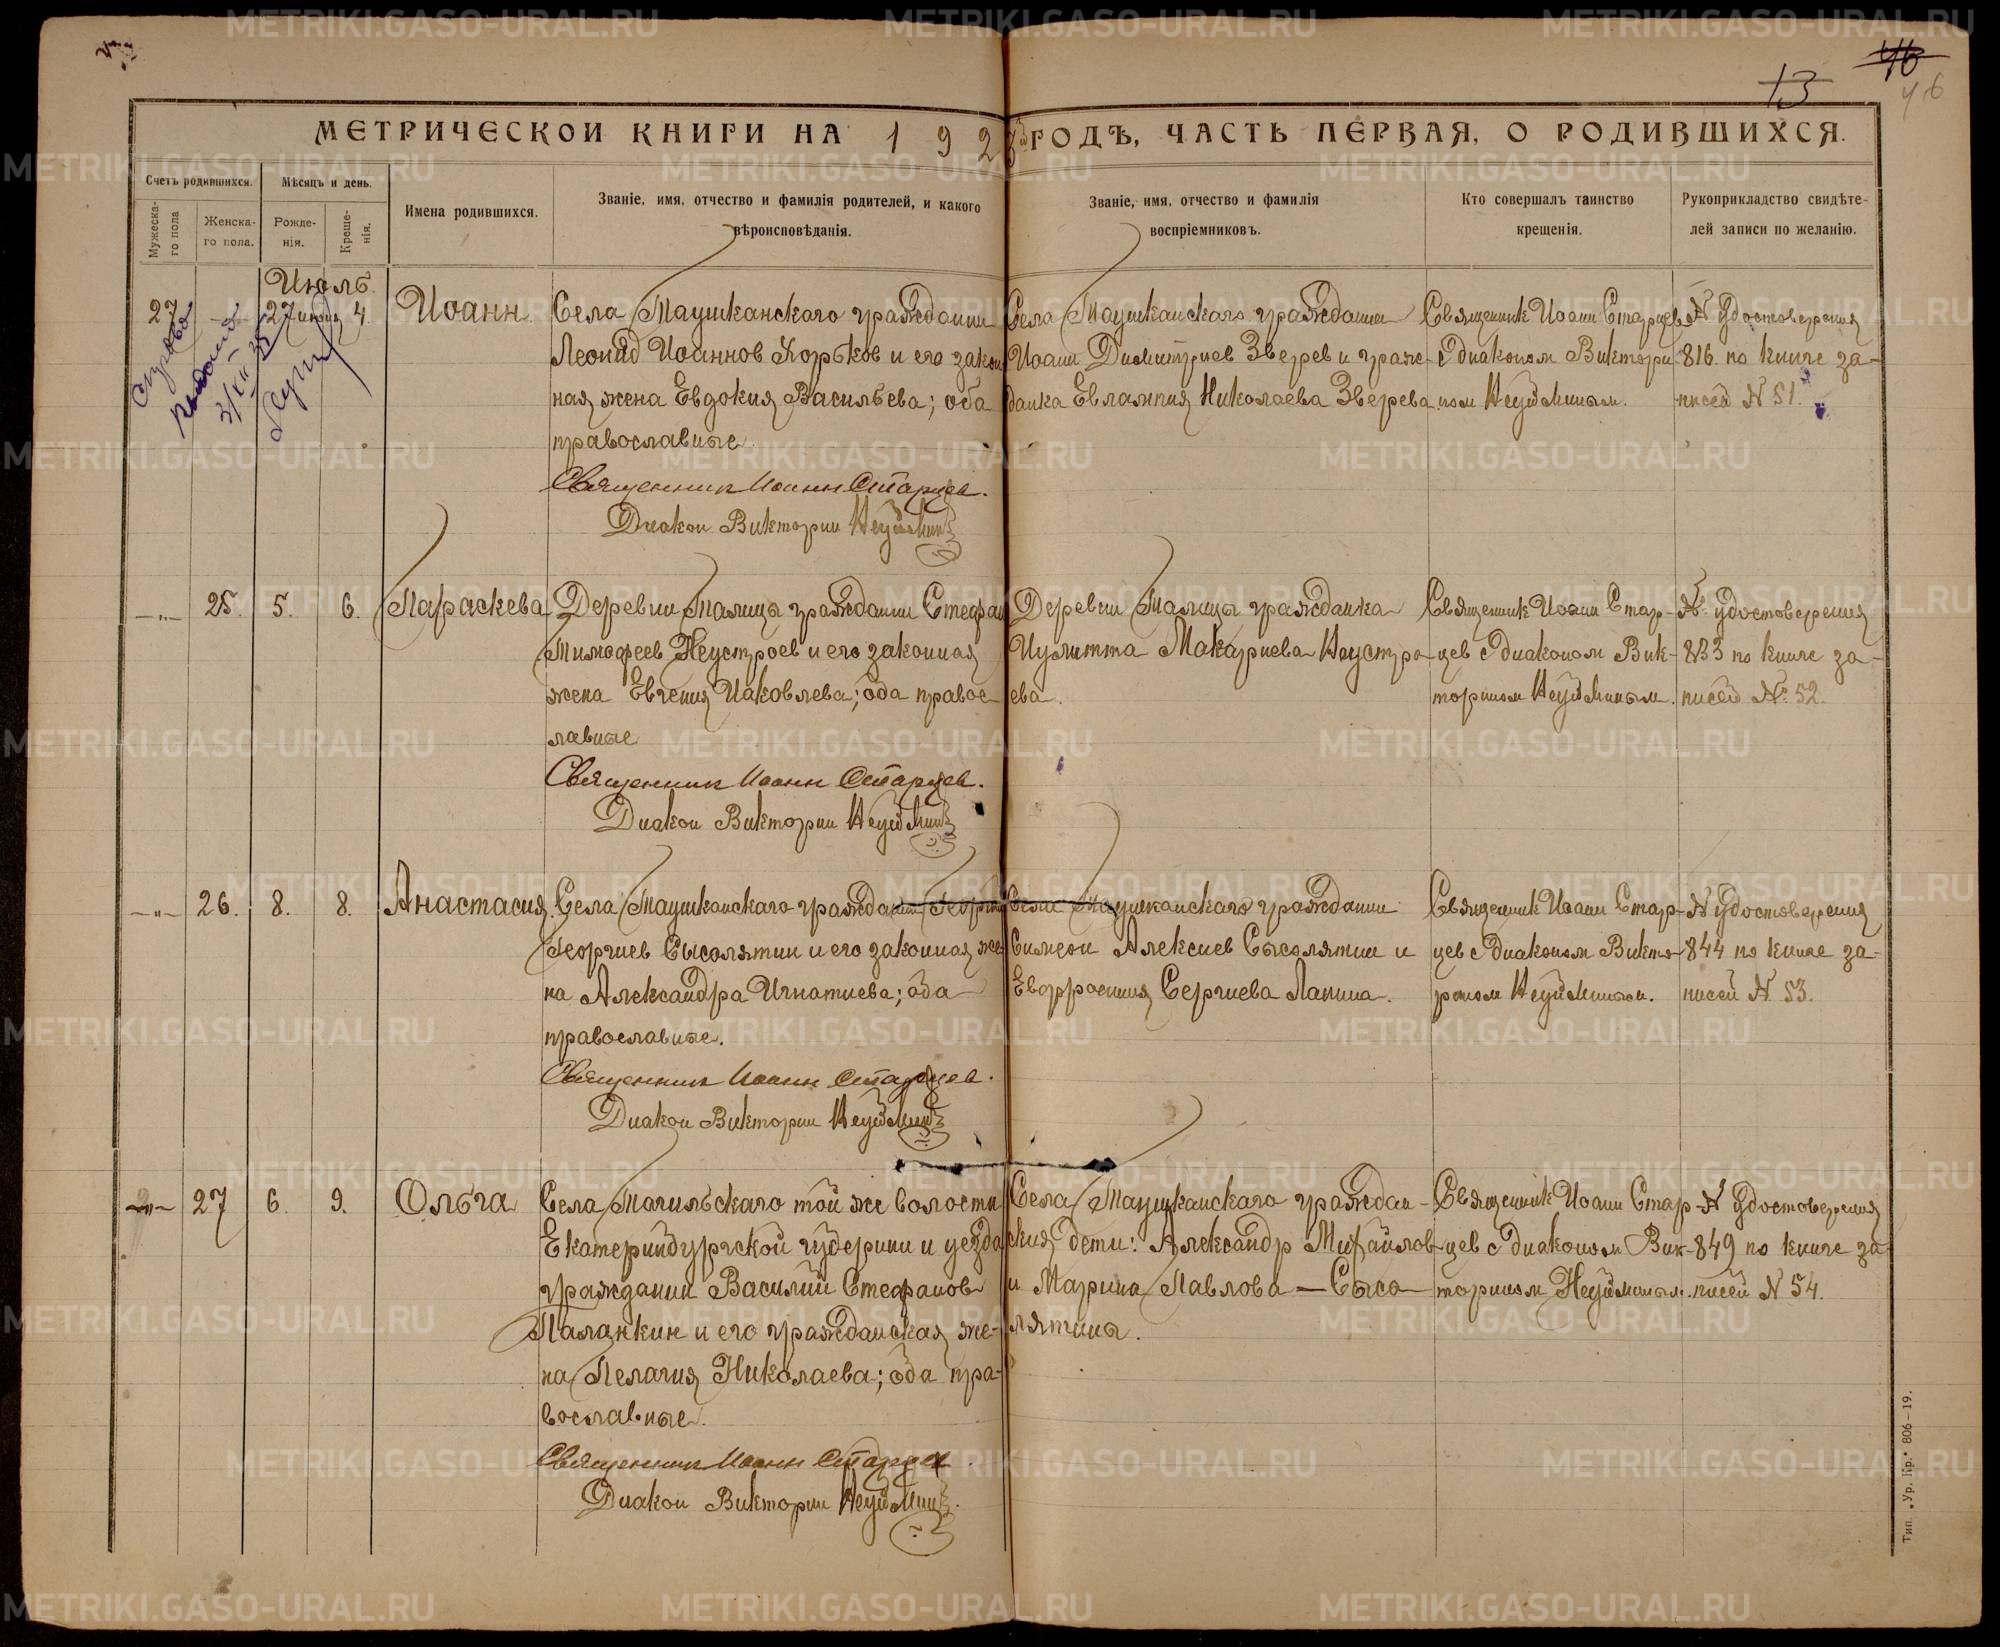 13
46
46
МЕТРИЧЕСКОЙ КНИГИ НА 1923 ГОДЪ, ЧАСТЬ ПЕРВАЯ, О РОДИВШИХСЯ.
Счетъ родившихся.
Мужеска-
го пола
Женска-
го пола.
Мѣсяцъ и день.
Рожде-
нія.
Креще-
нія.
Имена родившихся.
Званіе, имя, отчество и фамилія родителей, и какого
вѣроисповѣданія.
Званіе, имя, отчество и фамилія
воспріемниковъ.
Кто совершалъ таинство
крещенія.
Рукоприкладство свидѣте-
лей записи по желанію.
Июль.
27 27 июня 4. Иоанн
Села Маушканского гражданин
Леонид Иоаннов Хорьков и его закон
ная жена Евдокия Васильева; оба
православные
Священник Иоанн Старцев.
Диакон Викторин Неуймин
Села Маушканского гражданин
Иоанн Димитриев Зверев и граж-
данка Евлампия Николаева Зверева
Священник Иоанн Старцев
с диаконом Виктори
ном Неуйминым.
№ удостоверения
816. по книге за-
писей № 51.
25. 5. 6. Параскева
Деревни Талицы гражданин Стефан
Тимофеев Неустроев и его законная
жена Евгения Иаковлева; оба правос-
лавные
Священник Иоанн Старцев.
Диакон Викторин Неуймин
Деревни Талицы гражданка
Иулитта Макариева Неустро
ева.
Священник Иоанн Стар-
цев с диаконом Вик-
торином Неуйминым.
№ удостоверения
833 по книге за-
писей № 52.
26. 8. 8. Анастасия.
Села Маушканского гражданин Георгий
Георгиев Сысолятин и его законная же-
на Александра Игнатиева; оба
православные.
Священник Иоанн Старцев.
Диакон Викторин Неуймин
Села Маушканского гражданин
Симеон Алексиев Сысолятин и
Евфросиния Сергиева Лапина.
Священник Иоанн Стар-
цев с диаконом Викто-
рином Неуйминым.
№ удостоверения
844 по книге за-
писей № 53.
27 6. 9. Ольга
Села Могильского той же волости
Екатеринбургской губернии и уезда
гражданин Василий Стефанов
Паланкин и его гражданская же-
на Пелагия Николаева; оба пра-
вославные.
Священник Иоанн Старцев.
Диакон Викторин Неуймин.
Села Маушканского граждан-
ския дети: Александр Михайлов
и Марина Павлова — Сысо-
лятины.
Священник Иоанн Стар-
цев с диаконом Вик-
торином Неуйминым.
№ удостоверения
849 по книге за-
писей № 54.
Тип. „Ур. Кр." 806—19.
METRIKI.GASO-URAL.RU